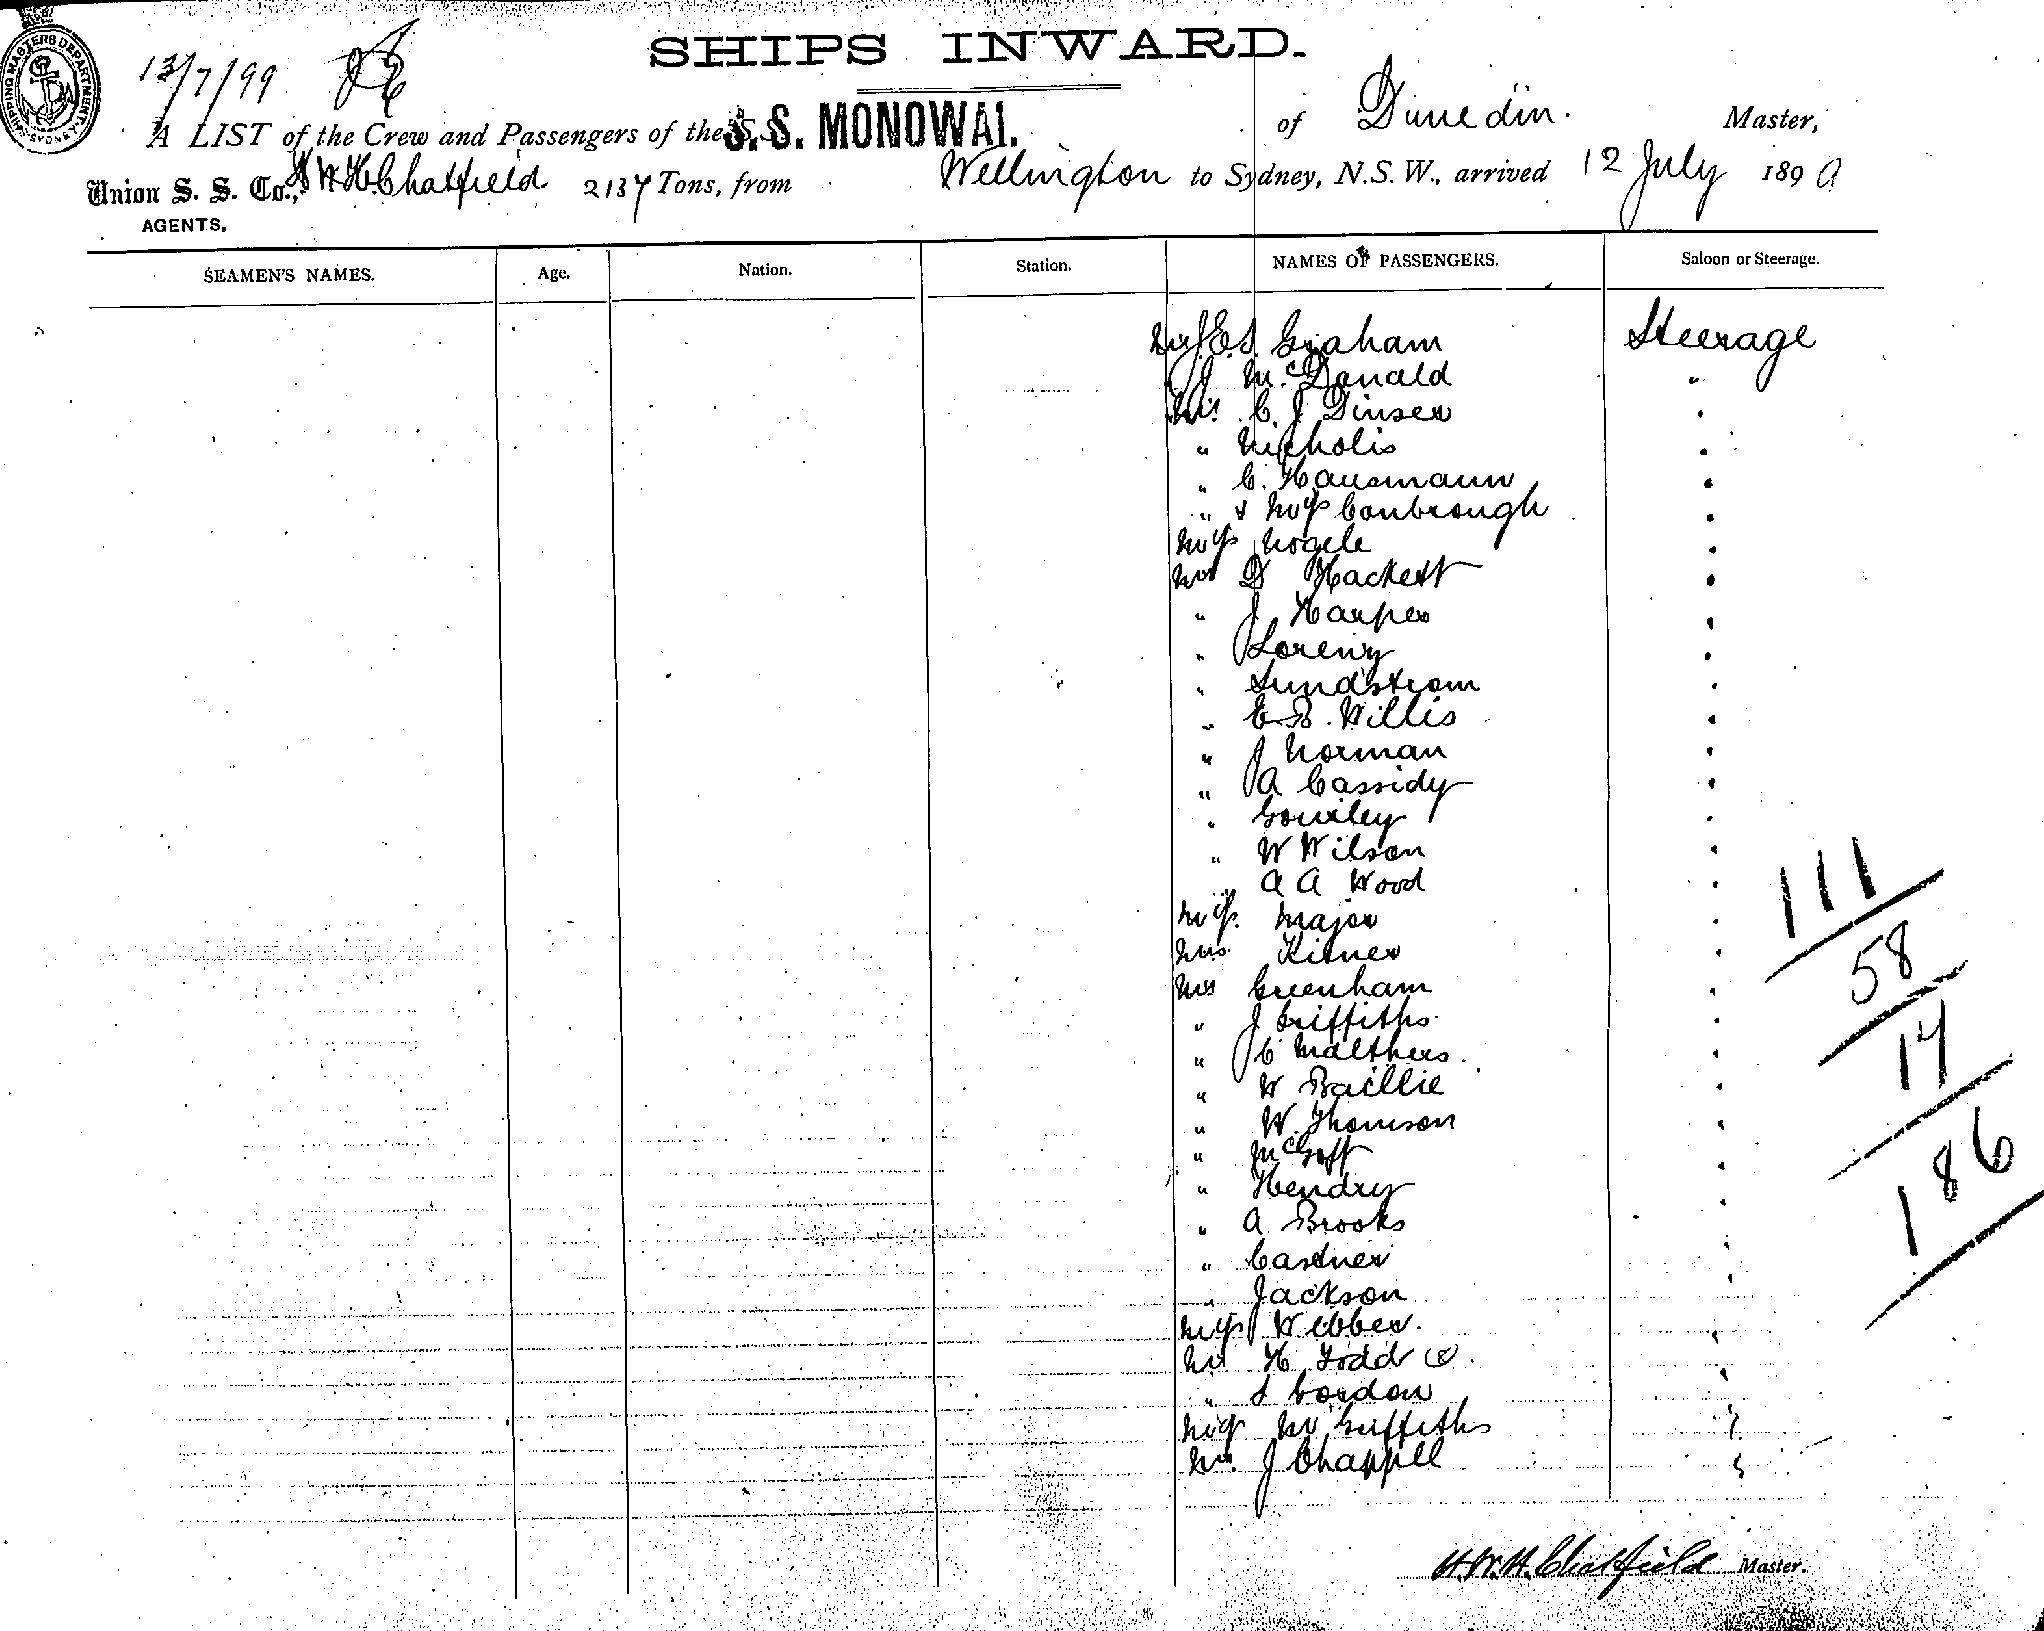 SHIPS INWARD.
13/7/99
A LIST of the Crew and Passengers of the S.S. MONOWAI. of Dunedin. Master,
Union S. S. Co., H W H Chatfield 2137 Tons, from Wellington to Sydney, N.S.W., arrived 12 July 1899
AGENTS.
SEAMEN'S NAMES. Age. Nation. Station. NAMES OF PASSENGERS. Saloon or Steerage.
Graham Steerage
J McDonald "
Mr. C. J Dinsen "
" Nicholis "
" C. Hausmann "
" & Miss Conbrough "
Miss "
Mr D Hackett "
" J Harper "
" Lorenz "
" Lundstrom "
" C B. Willis "
" J Norman "
" A Cassidy "
" Gourley "
" W Wilson "
" A A Wood "
Miss. Major "
Mrs Kitner "
Mr Greenham "
" J Griffiths "
" C Malthers. "
" W Baillie "
" W. Thomson "
" McGoff "
" Hendry "
" A Brooks "
" Castner "
" Jackson "
Miss Webber. "
Mr H Todd "
" S Gordon "
Miss M Griffiths "
Mr. J Chappell "
111
58
17
186
H.W.H. Chatfield Master.